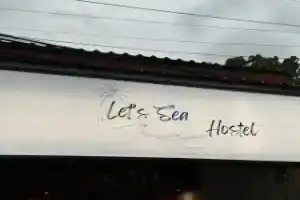 Let's Sea
Hostel